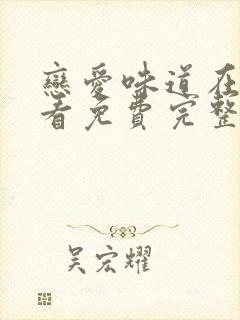 戀愛味道在
看免費完整
吴宏耀